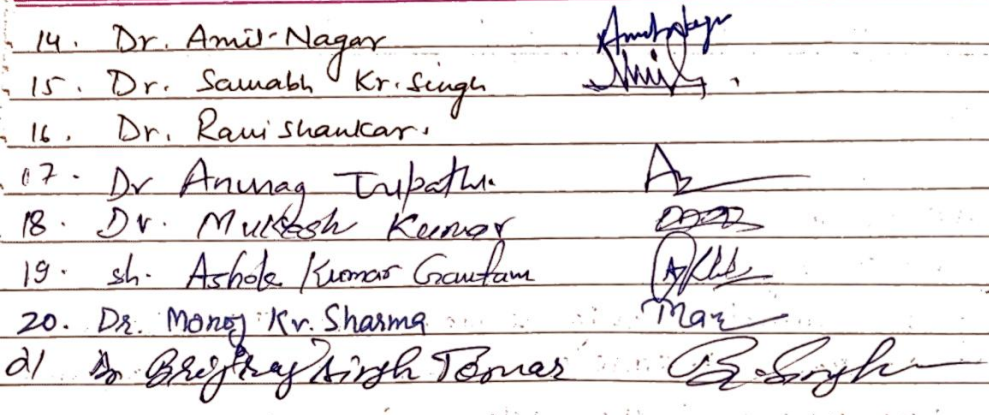 14. Dr. Amit Nagar Amit Nagar
15. Dr. Saurabh Kr. Singh
16. Dr. Ravi Shankar.
17. Dr Anurag Tripathi.
18. Dr. Mukesh Kumar
19. sh. Ashok Kumar Gautam
20. Dr. Manoj Kr. Sharma
21 Dr Brijraj Singh Tomar B. Singh